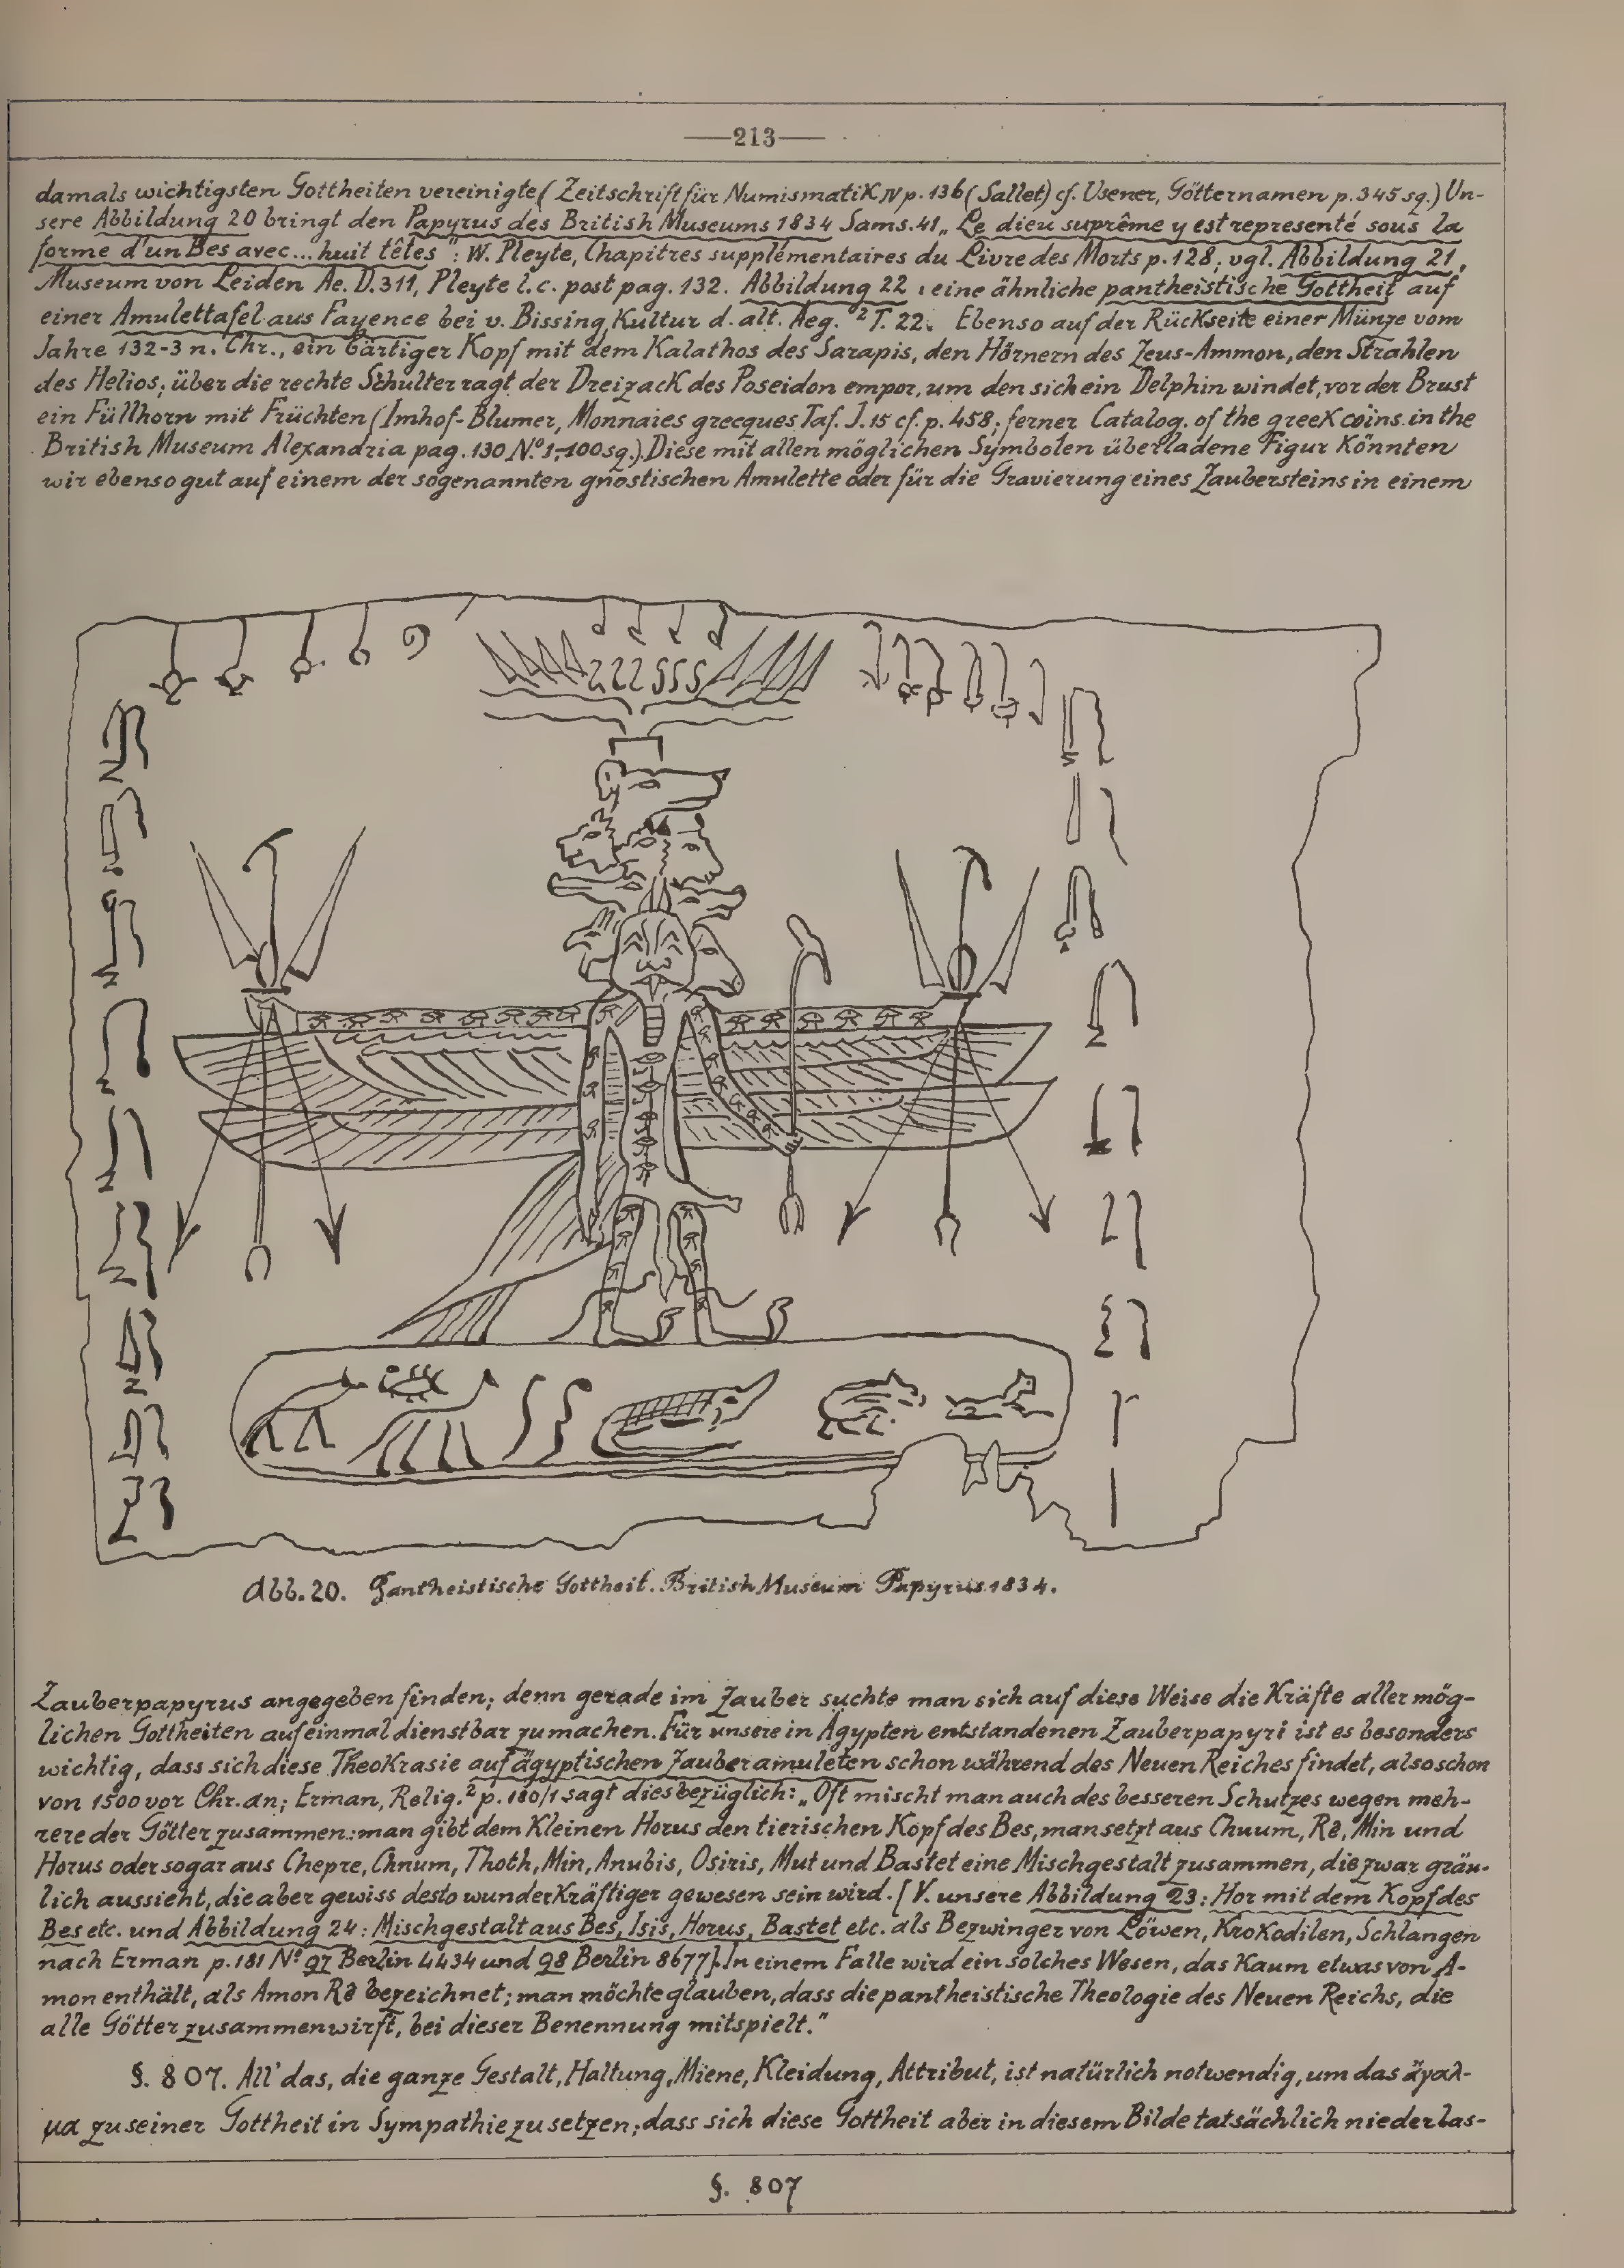 —213—
damals wichtigsten Gottheiten vereinigte (Zeitschrift für Numismatik IV p. 136 (Sallet) cf. Usener, Götternamen p. 345 sq.) Un-
sere Abbildung 20 bringt den Papyrus des British Museums 1834 Sams. 41 „Le dieu suprême y est representé sous la
forme d'un Bes avec... huit têtes": W. Pleyte, Chapitres supplémentaires du Livre des Morts p. 128; vgl. Abbildung 21,
Museum von Leiden Ae. D. 311, Pleyte l. c. post pag. 132. Abbildung 22: eine ähnliche pantheistische Gottheit auf
einer Amulettafel aus Fayence bei v. Bissing, Kultur d. alt. Aeg. ² T. 22. Ebenso auf der Rückseite einer Münze vom
Jahre 132-3 n. Chr., ein bärtiger Kopf mit dem Kalathos des Sarapis, den Hörnern des Zeus-Ammon, den Strahlen
des Helios; über die rechte Schulter ragt der Dreizack des Poseidon empor, um den sich ein Delphin windet, vor der Brust
ein Füllhorn mit Früchten (Imhof-Blumer, Monnaies grecques Taf. J. 15 cf. p. 458; ferner Catalog. of the greek coins in the
British Museum Alexandria pag. 130 N.° 1,-100 sg.) Diese mit allen möglichen Symbolen überladene Figur könnten
wir ebenso gut auf einem der sogenannten gnostischen Amulette oder für die Gravierung eines Zaubersteins in einem
Abb. 20. Pantheistische Gottheit. British Museum Papyrus 1834.
Zauberpapyrus angegeben finden; denn gerade im Zauber suchte man sich auf diese Weise die Kräfte aller mög-
lichen Gottheiten auf einmal dienstbar zu machen. Für unsere in Ägypten entstandenen Zauberpapyri ist es besonders
wichtig, dass sich diese Theokrasie auf ägyptischen Zauberamuleten schon während des Neuen Reiches findet, also schon
von 1500 vor Chr. an; Erman, Relig.² p. 180/1 sagt diesbezüglich: „Oft mischt man auch des besseren Schutzes wegen meh-
rere der Götter zusammen: man gibt dem kleinen Horus den tierischen Kopf des Bes, man setzt aus Chnum, Rê, Min und
Horus oder sogar aus Chepre, Chnum, Thoth, Min, Anubis, Osiris, Mut und Bastet eine Mischgestalt zusammen, die zwar gräu-
lich aussieht, die aber gewiss desto wunderkräftiger gewesen sein wird. [V. unsere Abbildung 23: Hor mit dem Kopf des
Bes etc. und Abbildung 24: Mischgestalt aus Bes, Isis, Horus, Bastet etc. als Bezwinger von Löwen, Krokodilen, Schlangen
nach Erman p. 181 N° 97 Berlin 4434 und 98 Berlin 8677]. In einem Falle wird ein solches Wesen, das kaum etwas von A-
mon enthält, als Amon Rê bezeichnet; man möchte glauben, dass die pantheistische Theologie des Neuen Reichs, die
alle Götter zusammenwirft, bei dieser Benennung mitspielt."
§. 807. All' das, die ganze Gestalt, Haltung, Miene, Kleidung, Attribut, ist natürlich notwendig, um das ἄγαλ-
μα zu seiner Gottheit in Sympathie zu setzen; dass sich diese Gottheit aber in diesem Bilde tatsächlich niederlas-
§. 807